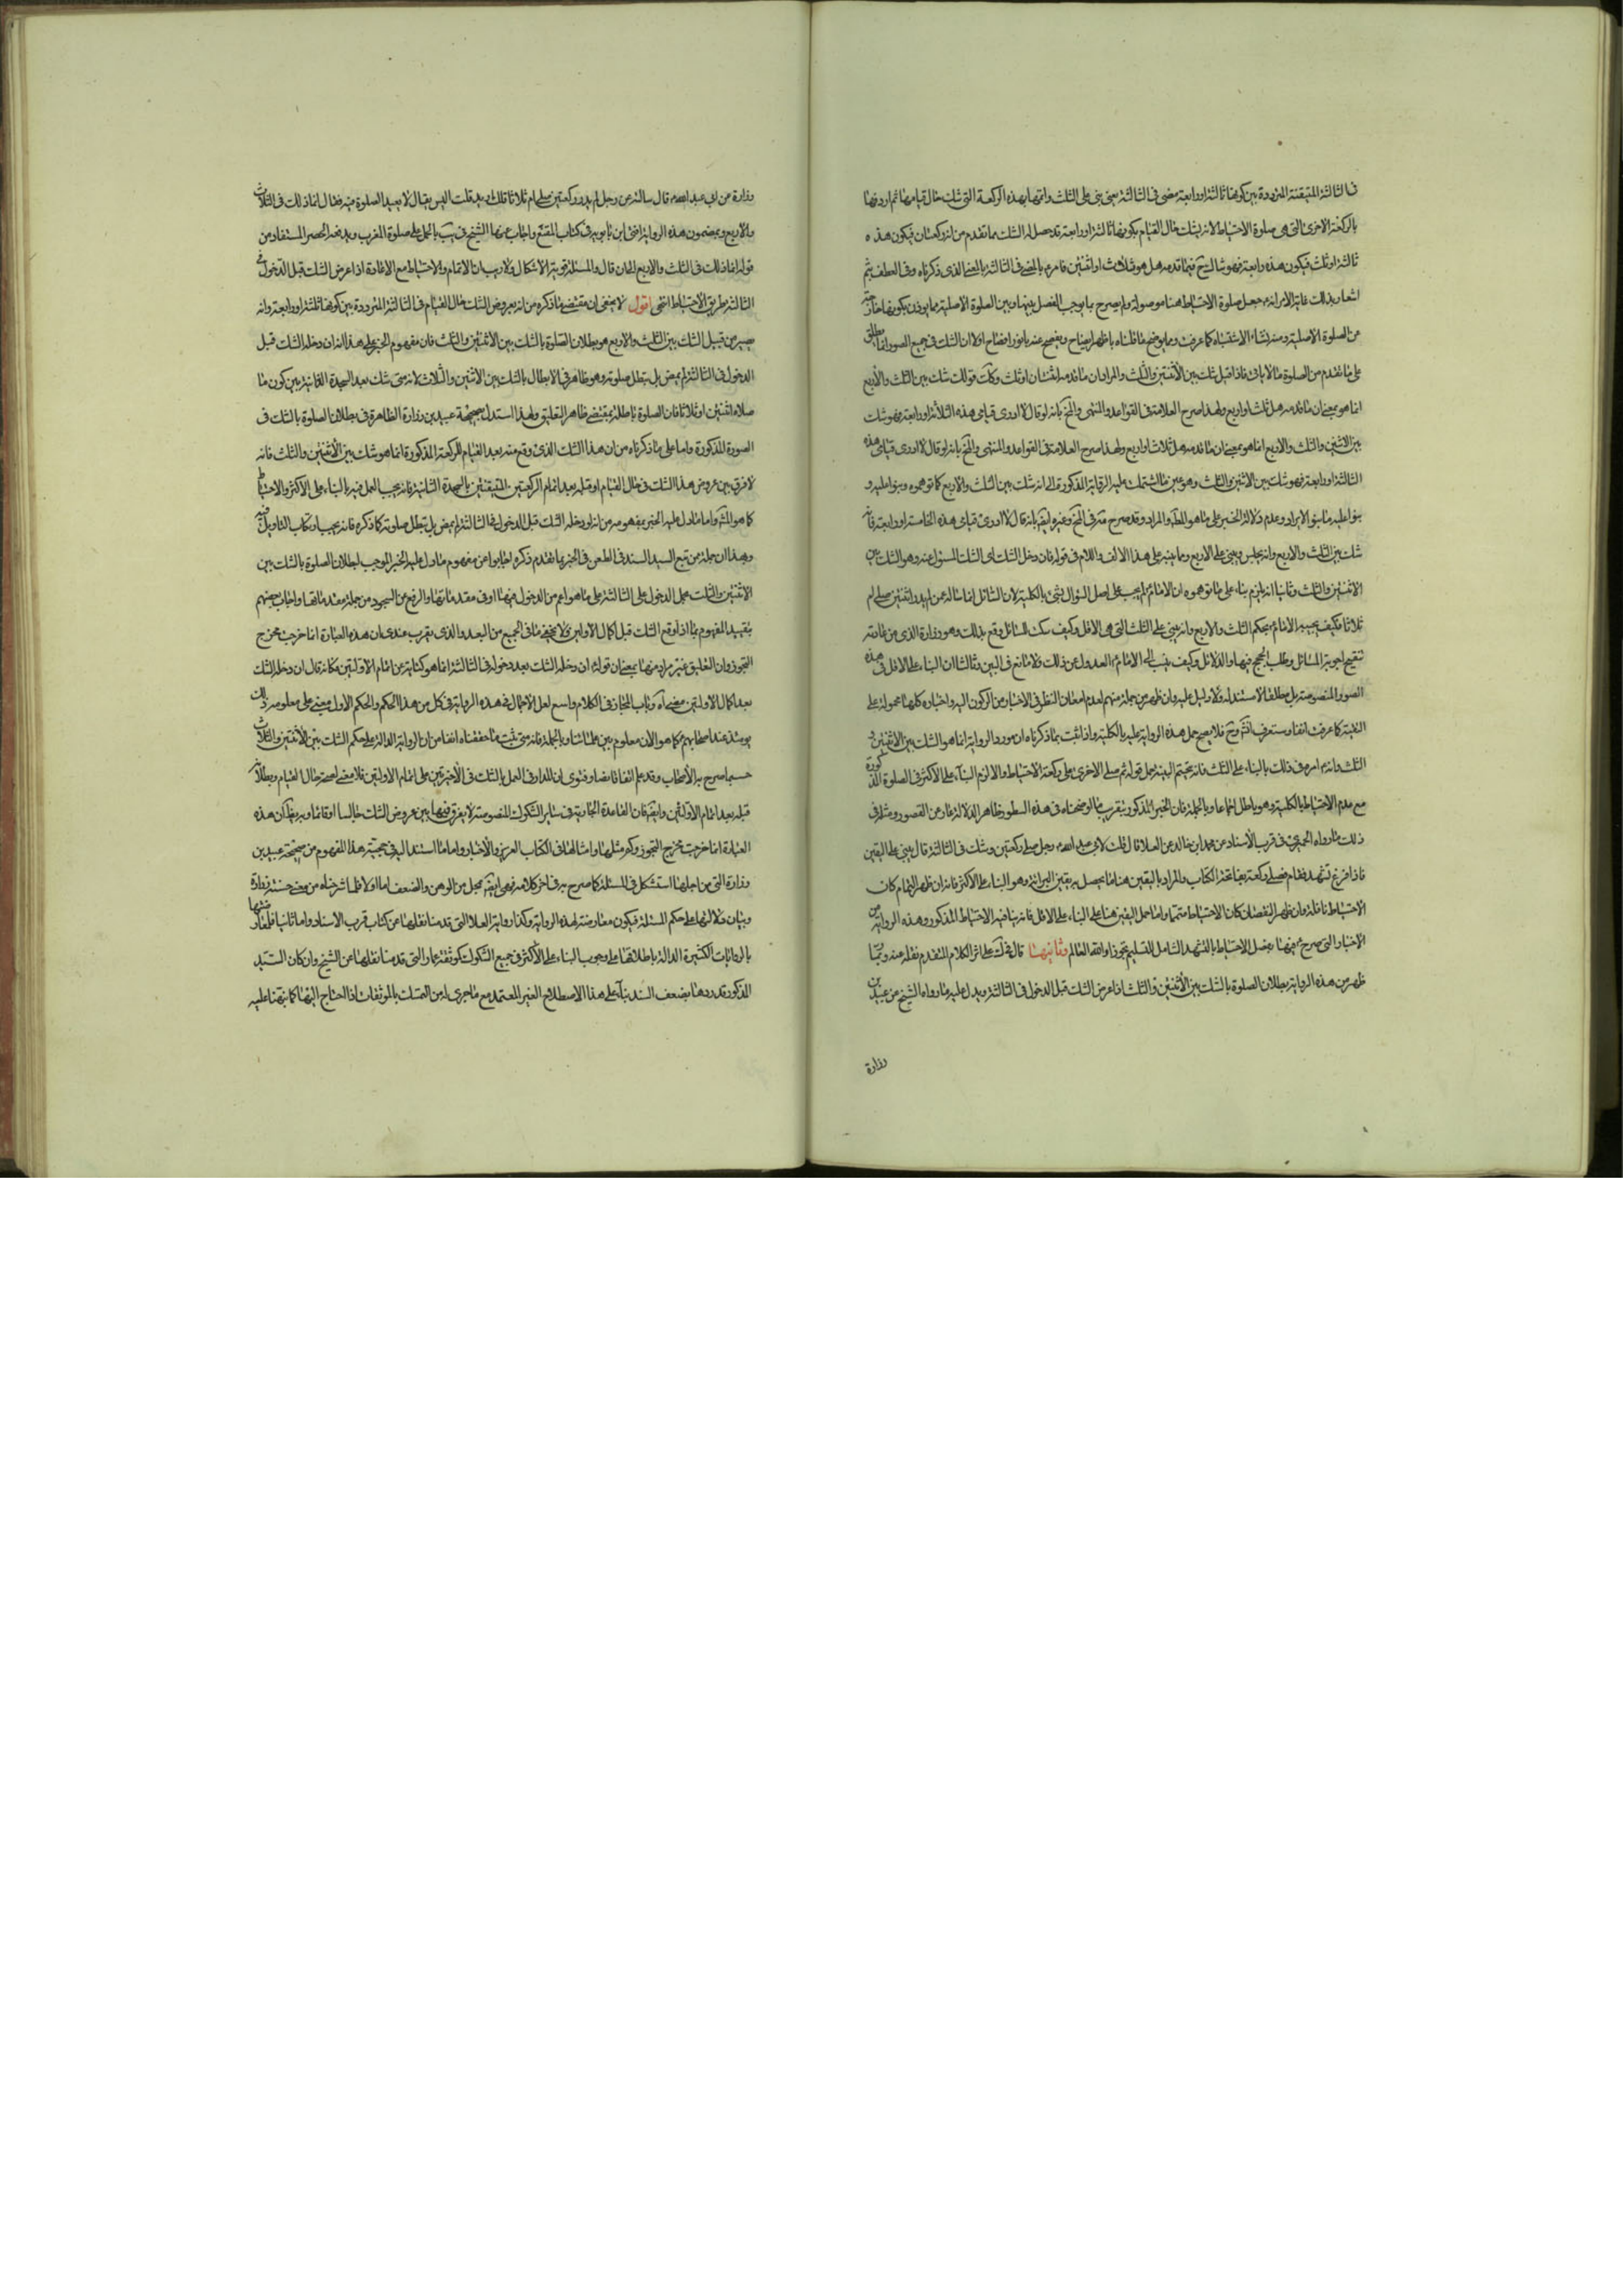 في الثالثة المتيقنة المترددة بين كونها ثالثة او رابعة مضى في الثالثة يعني بنى على الثلث واتمها بهذه الركعة التي شك حال قيامها ثم اردفها
بالركعة الاخرى التي هي صلوة الاحتياط لانه بشك حال القيام بكونها ثالثة او رابعة قد حصل له الشك مما تقدم من انه ركعتان فيكون هذه
ثالثة او ثلث فيكون هذه رابعة فهو شاك ح فيما قدمه هل هو ثلاث او اثنتين فامره بالمضي في الثالثة بالمعنى الذي ذكرناه وفي العطف بثم
اشعار بذلك غاية الامر انه جعل صلوة الاحتياط هنا موصولة ولم يصرح بما يوجب الفصل بينها وبين الصلوة الاصلية مما يوذن بكونها خارجة
عن الصلوة الاصلية ومنه نشاء الاشتباه كما عرفت ومما يوضح ما قلناه باظهر ايضاح ويفصح عنه بانور افصاح اولا ان الشك في جميع الصور انما يطلق
على ما تقدم من الصلوة لا ما ياتي فاذا قيل شك بين الأثنتين والثلث والمراد ان ما قدمه اثنتان او ثلث وكك قولك شك بين الثلث والأربع
انما هو بمعنى ان ما قدمه هل ثلث او اربع ولهذا صرح العلامة في القواعد والمنتهى والتح بانه لو قال لا ادري قيامي هذه الثالثة او رابعة فهو شك
بين الاثنين والثلث والاربع انما هو بمعنى ان ما قدمه هل ثلاث او اربع ولهذا صرح العلامة في القواعد والمنتهى والتح بانه لو قال لا ادري قيامي هذه
الثالثة او رابعة فهو شك بين الاثنتين والثلث وهو عين ما اشتملت عليه الرواية المذكورة لا انه شك بين الثلث والاربع كما توهموه وبنوا عليه و
بنوا عليه ما بنوا الايراد وعدم دلالة الخبر على ما هو المط والمراد وقد صرح مثله في التح وغيره ايض بانه قال لا ادري قيامي هذه الخامسة او رابعة فانه
شك بين الثلث والاربع وانه يجلس ويبني على الاربع ومما ينبه على هذا الالف واللام في قوله فان دخل الشك اي الشك المسئول عنه وهو الشك بين
الاثنتين والثلث وثانيا انه يلزم بناء على ما توهموه ان الامام ع لم يجب على اصل السؤال بشيء بالكلية لان السائل انما ساله عمن لم يدر اثنتين صلى ام
ثلاثا فكيف يجيبه الامام ع بحكم الثلث والاربع وانه يبني على الثلث التي هي الاقل وكيف سكت السائل وقنع بذلك وهو زرارة الذي من عادته
تنقيح اجوبة المسائل وطلب الحجج فيها والدلائل وكيف ينسب الى الامام ع العدول عن ذلك ولا مانع في البين وثالثا ان البناء على الاقل في هذه
الصور المنصوصة بل مطلقا لا مستند له ولا دليل عليه وان ظهر من جملة منهم لعدم امعان النظر في الاخبار من الركون اليه واخباره كلها محمولة على
التقية كما عرفت انفا وستعرف انش وح فلا يصح حمل هذه الرواية عليه بالكلية واذا ثبت بما ذكرناه ان مورد الرواية انما هو الشك بين الاثنتين و
الثلث وانه ع امره في ذلك بالبناء على الثلث فانه يتحتم البتة حمل قوله ثم صلى الاخرى على ركعة الاحتياط والا لزم البناء على الاكثر في الصلوة المذكورة
مع عدم الاحتياط بالكلية وهو باطل اجماعا وبالجملة فان الخبر المذكور بتقريب ما اوضحناه في هذه السطور ظاهر الدلالة عار عن القصور ومثله في
ذلك ما رواه الحميري في قرب الأسناد عن محمد ابن خالد عن العلا قال قلت لابي عبد الله رجل صلى ركعتين وشك في الثالثة قال يبني على اليقين
فاذا فرغ تشهد وقام فصلى ركعة بفاتحة الكتاب والمراد باليقين هنا ما يحصل به يقين البرائة وهو البناء على الاكثر فانه ان ظهر التمام كان
الاحتياط نافلة وان ظهر النقصان كان الاحتياط متمما واما حمل اليقين هنا على البناء على الاقل فانه ينافيه الاحتياط المذكور وهذه الرواية من
الاخبار التي صرح ع فيها بفصل الاحتياط بالتشهد الشامل للتسليم تجوزا والله العالم وثانيها قال في ك على اثر الكلام المتقدم نقله عنه وربما
ظهر من هذه الرواية بطلان الصلوة بالشك بين الأثنتين والثلث اذا عرض الشك قبل الدخول في الثالثة ويدل عليه ما رواه الشيخ عن عبيد بن
زرارة
زرارة عن ابي عبد الله ع قال سالته عن رجل لم يدر ركعتين صلى ام ثلاثا قال يعيد قلت اليس يقال لا يعيد الصلوة فقيه فقال انما ذلك في الثلاث
والاربع وبمضمون هذه الرواية افتى ابن بابويه في كتاب المقنع واجاب عنها الشيخ في يب بالحمل على صلوة المغرب ويدفعه الحصر المستفاد من
قوله انما ذلك في الثلث والاربع الى ان قال والمسئلة قوية الأشكال ولا ريب ان الاتمام والاحتياط مع الاعادة اذا عرض الشك قبل الدخول في
الثالثة طريق الأحتياط انتهى اقول لا يخفى ان مقتضى ما ذكره من انه بعروض الشك حال القيام في الثالثة المترددة بين كونها ثالثة او رابعة وانه
يصير من قبيل الشك بين الثلث والاربع هو بطلان الصلوة بالشك بين الأثنتين والثلث فان مفهوم الخبر على هذا انه ان دخله الشك قبل
الدخول في الثالثة لم يمض بل تبطل صلوته وهو ظاهر في الابطال بالشك بين الاثنتين والثلاث لانه متى شك بعد السجدة الثانية بين كون ما
صلاه اثنتين او ثلاثا فان الصلوة باطلة بمقتضى ظاهر التعليق ولهذا استدل بصحيحة عبيد بن زرارة الظاهرة في بطلان الصلوة بالشك في
الصورة المذكورة واما على ما ذكرناه من ان هذا الشك الذي وقع منه بعد القيام للركعة المذكورة انما هو شك بين الأثنتين والثلث فانه
لا فرق بين عروض هذا الشك في حال القيام او قبله بعد اتمام الركعتين المتيقنتين بالسجدة الثانية فانه يجب العمل فيه بالبناء على الاكثر والاحتياط
كما هو المش واما ما دل عليه الخبر بمفهومه من انه لو دخله الشك قبل الدخول في الثالثة لم يمض بل تبطل صلوته كما ذكره فانه يجب ارتكاب التاويل فيه
وبهذا ان جملة ممن تبع السيد السند في الطعن في الخبر بما تقدم ذكره اجابوا عن مفهوم ما دل عليه الخبر الموجب لبطلان الصلوة بالشك بين
الاثنتين والثلث بحمل الدخول على الثالثة على ما هو اعم من الدخول فيها او في مقدماتها والرفع من السجود من جملة مقدماتها واجاب بعضهم
بتقييد المفهوم بما اذا وقع الشك قبل اكمال الأوليين ولا يخفى ما في الجميع من البعد والذي يقرب عندي ان هذه العبارة انما خرجت مخرج
التجوز وان التعليق غير مراد منها بمعنى ان قوله ان دخله الشك بعد دخوله في الثالثة انما هو كناية عن اتمام الاولتين فكانه قال ان دخله الشك
بعد اكمال الاولتين مضى اه وباب المجاز في الكلام واسع لعل الاجمال في هذه الرواية في كل من هذا الحكم والحكم الاول مبني على معلومية ذلك
يومئذ عند اصحابهم كما هو الآن معلوم بين علمائنا وبالجملة فانه متى ثبت بما حققناه انفا من ان الرواية الدالة على حكم الشك بين الأثنتين والثلاث
حسبما صرح به الأصحاب وقد علم اتفاقا نصا وفتوى ان المدار في العمل بالشك في الأخيرتين على اتمام الاولتين فلا معنى لصحته حال القيام وبطلانه
قبله بعد اتمام الاولتين وايض فان القاعدة الجارية في ساير الشكوك المنصوصة لا يفرق فيها بين عروض الشك جالسا او قائما وبه يظهر ان هذه
العبارة انما خرجت مخرج التجوز وكم مثلها وامثالها في الكتاب العزيز والأخبار واما ما استند اليه في حجية هذا المفهوم من صحيحة عبيد بن
زرارة التي من اجلها استشكل في المسئلة كما صرح به في اخر كلامه فهي ايض بمحل من الوهن والضعف اما اولا فلما شرحناه من معنى حسنة زرارة
وبيان دلالتها على حكم المسئلة فيكون معارضة لهذه الرواية وكذا رواية العلا التي قدمنا نقلها عن كتاب قرب الاسناد واما ثانيا فلمعارضتها
بالروايات الكثيرة الدالة باطلاقها على وجوب البناء على الأكثر في جميع الشكوك كموثقة عمار التي قدمنا نقلها عن الشيخ وان كان السيد
المذكور قد ردها بضعف السند بناء على هذا الاصطلاح الغير المعتمد مع ما جرى له من التمسك بالموثقات اذا احتاج اليها كما نبهنا عليه